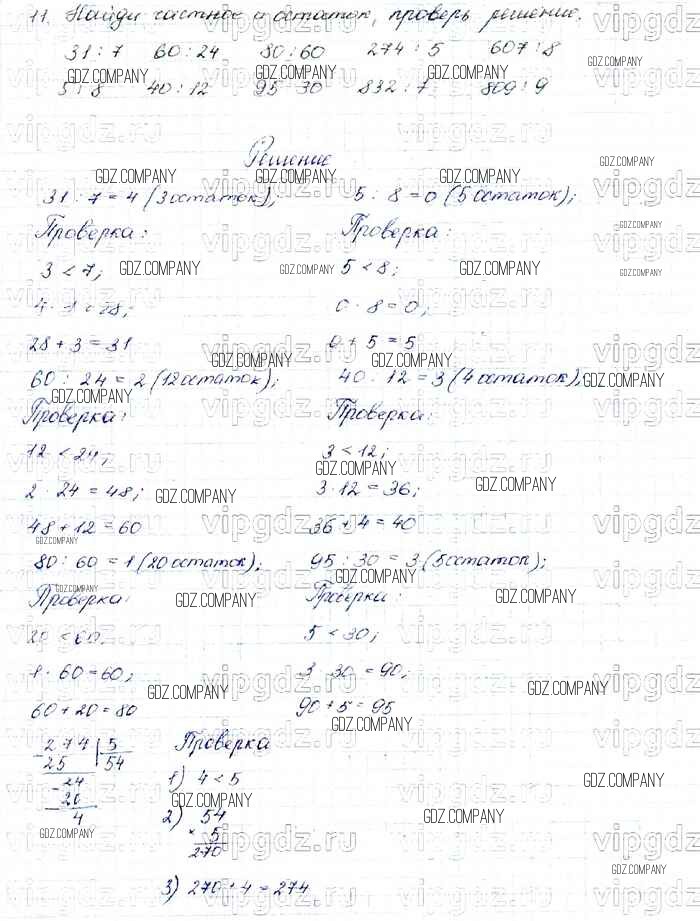 11. Найди частное и остаток, проверь решение.
31 : 7 60 : 24 80 : 60 274 : 5 607 : 8
5 : 8 40 : 12 95 30 832 : 7 809 : 9
Решение
31 : 7 = 4 (3 остаток); 5 : 8 = 0 (5 остаток);
Проверка: Проверка:
3 < 7; 5 < 8;
= 28; 0 · 8 = 0;
28 + 3 = 31 0 + 5 = 5
60 : 24 = 2 (12 остаток); 40 : 12 = 3 (4 остаток);
Проверка: Проверка:
12 < 24; 3 < 12;
2 · 24 = 48; 3 · 12 = 36;
48 + 12 = 60 36 + 4 = 40
80 : 60 = 1 (20 остаток); 95 : 30 = 3 (5 остаток);
Проверка: Проверка:
20 < 60; 5 < 30;
1 · 60 = 60; 3 · 30 = 90;
60 + 20 = 80 90 + 5 = 95
274 5 Проверка
25 54
- 24 1) 4 < 5
20 2) 54
4 × 5
270
3) 270 + 4 = 274
GDZ.COMPANY
vipgdz.ru